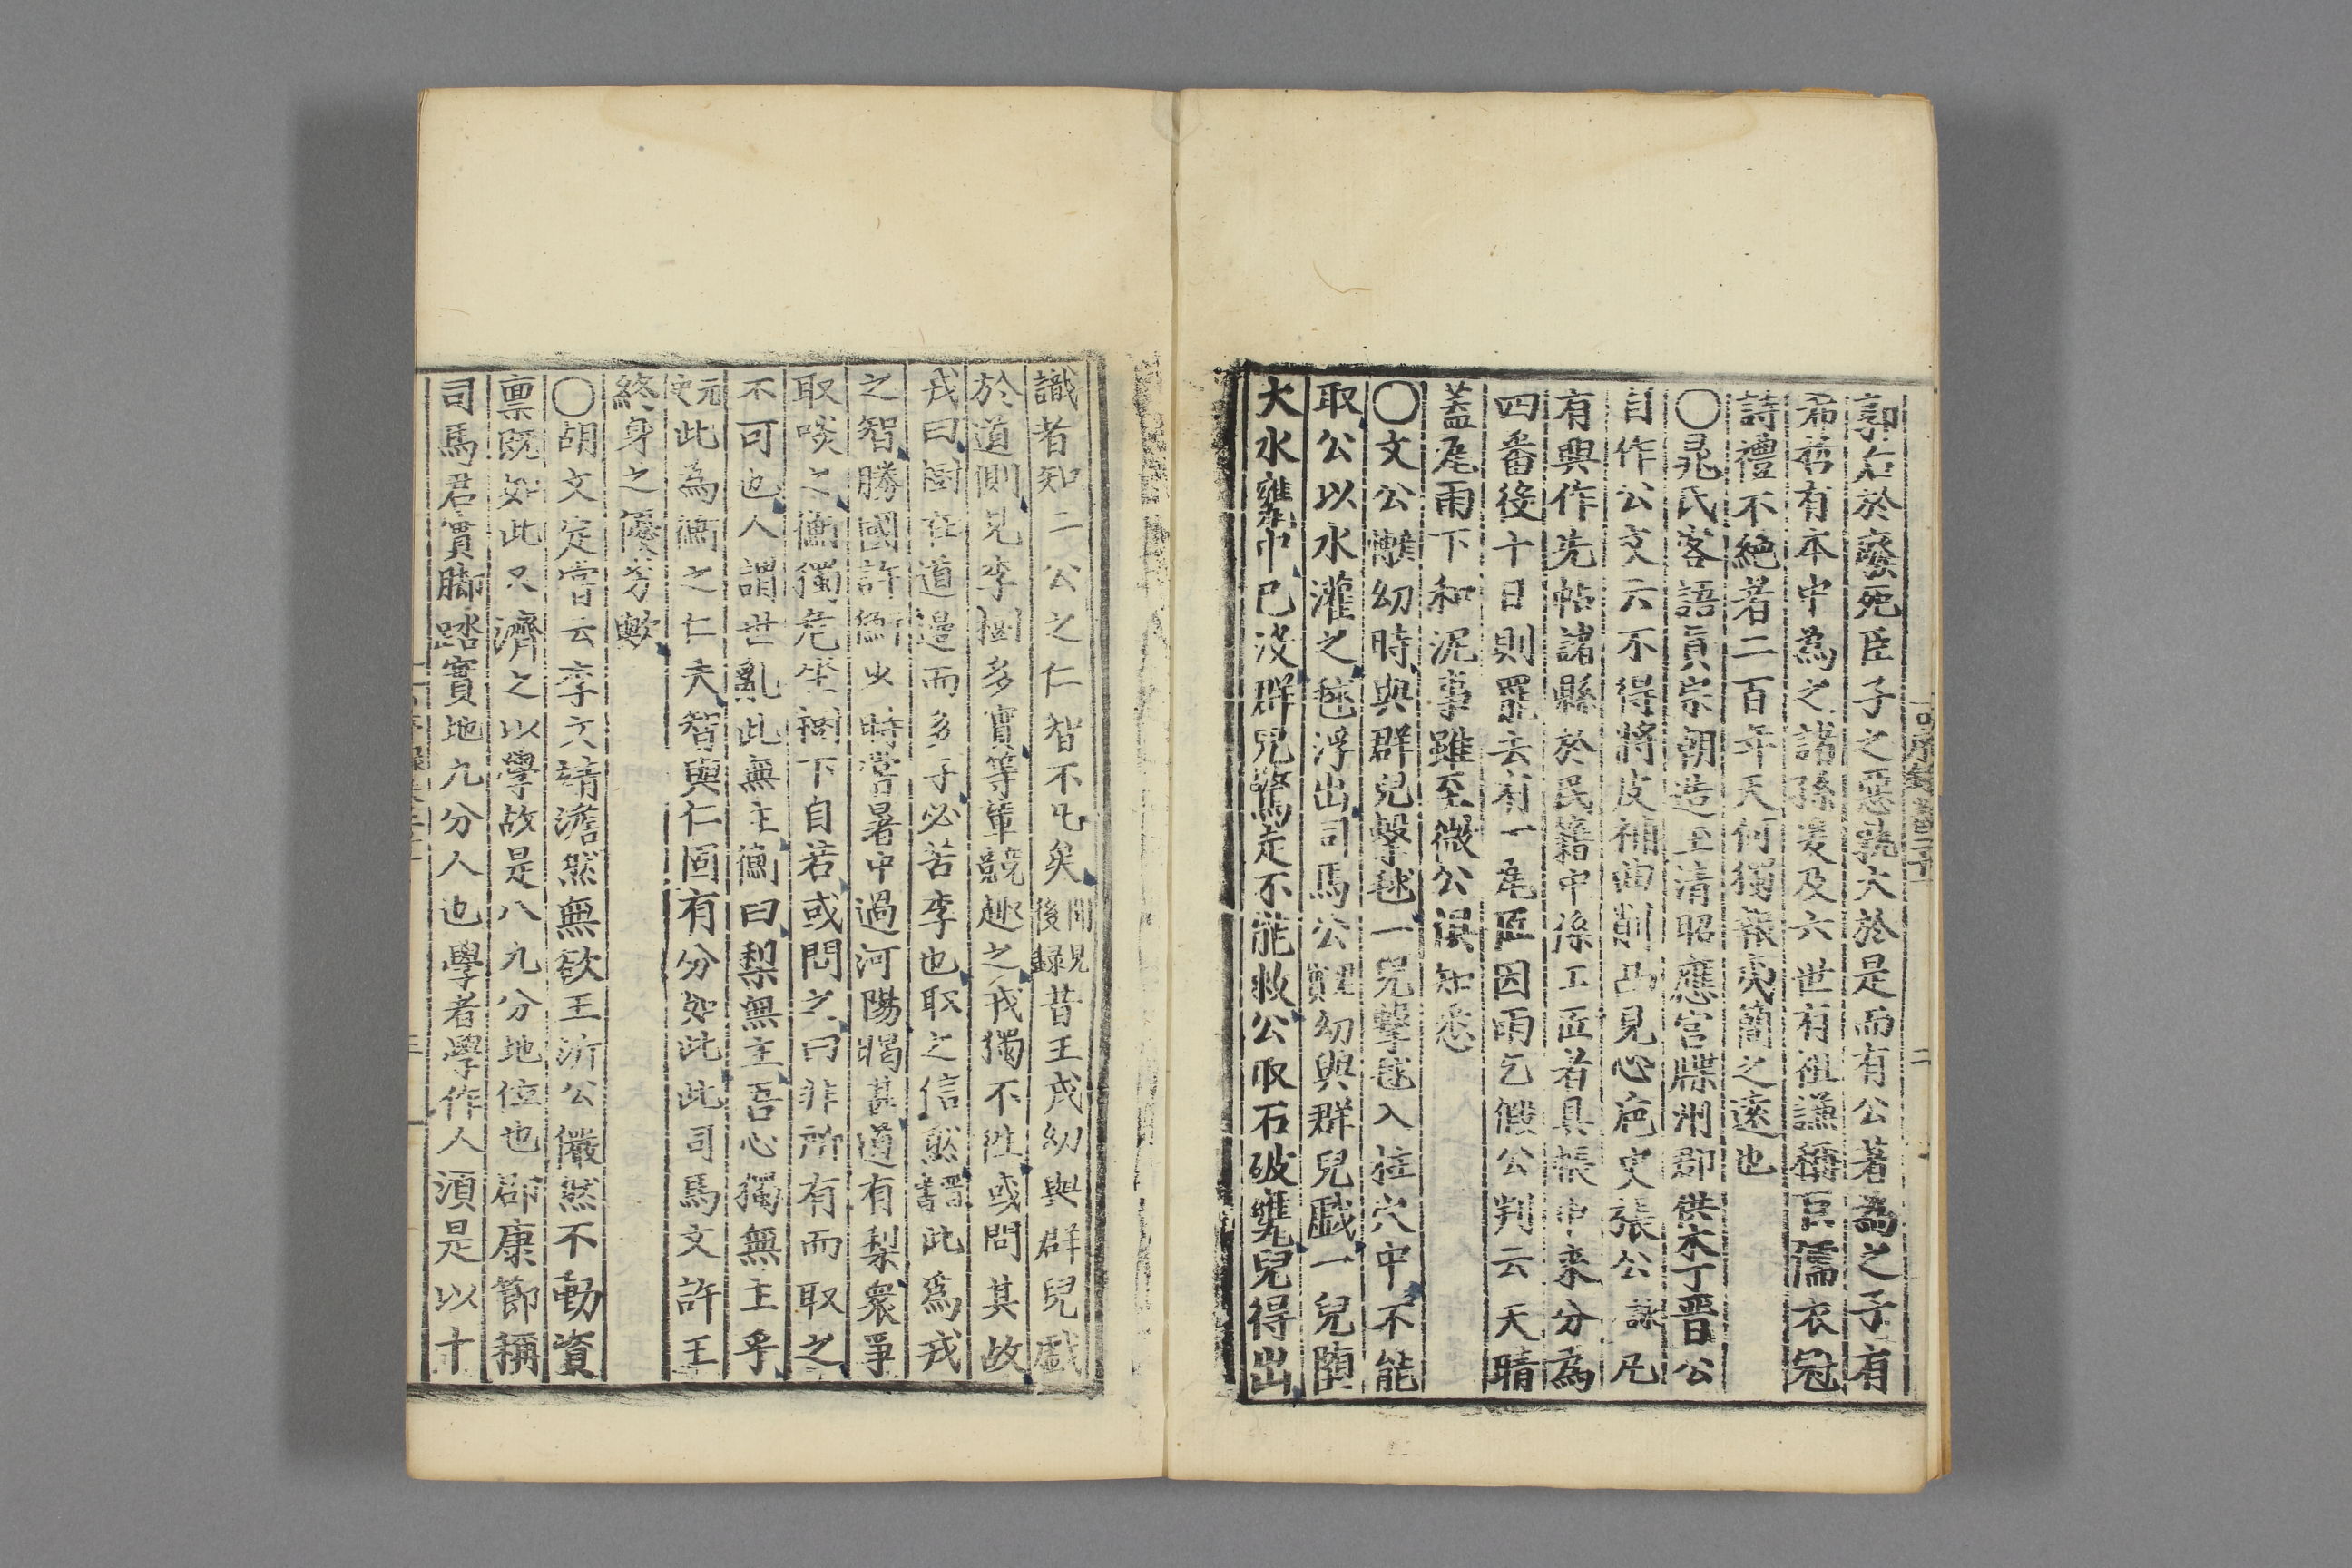 郭右於癈死臣子之惡孰大於是而有公著為之子有
希哲有本中為之諸孫爰及六世有祖謙稱巨儒衣冠
詩禮不絶者二百年天何獨報夷簡之遠也
〇晁氏客語眞宗朝造玉清昭應宮牒州郡供木丁晋公
自作公文云不得將皮補曲削凸見心㡯史張公詠凡
有興作先帖諸縣於民籍中係工匠者具帳申来分為
四番役十日則罷去有一㡯匠因雨乞假公判云天晴
蓋㡯雨下和泥事雖至微公俱知悉
〇文公幼時與群兒擊毬一兒擊毬入柱穴中不能
取公以水灌之毬浮出司馬公幼與群兒戯一兒堕
大水甕中已没群兒驚走不能救公取石破甕兒得出
識者知二公之仁智不凡矣聞見後録昔王戎幼與群兒戯
於道側見李樹多實等輩競趣之戎獨不徃或問其故
戎曰樹在道邊而多子必苦李也取之信然晋書此爲戎
之智勝國許衡少時嘗暑中過河陽暍甚道有梨衆爭
取啖之衡獨危坐樹下自若或問之曰非所有而取之
不可也人謂世亂此無主衡曰梨無主吾心獨無主乎
元史此為衡之仁夫智與仁固有分如此此司馬文許王
終身之優劣歟
〇胡文定嘗云李文靖澹然無欲王沂公儼然不動資
禀既如此又濟之以學故是八九分地位也邵康節稱
司馬君實脚踏實地九分人也學者學作人須是以十